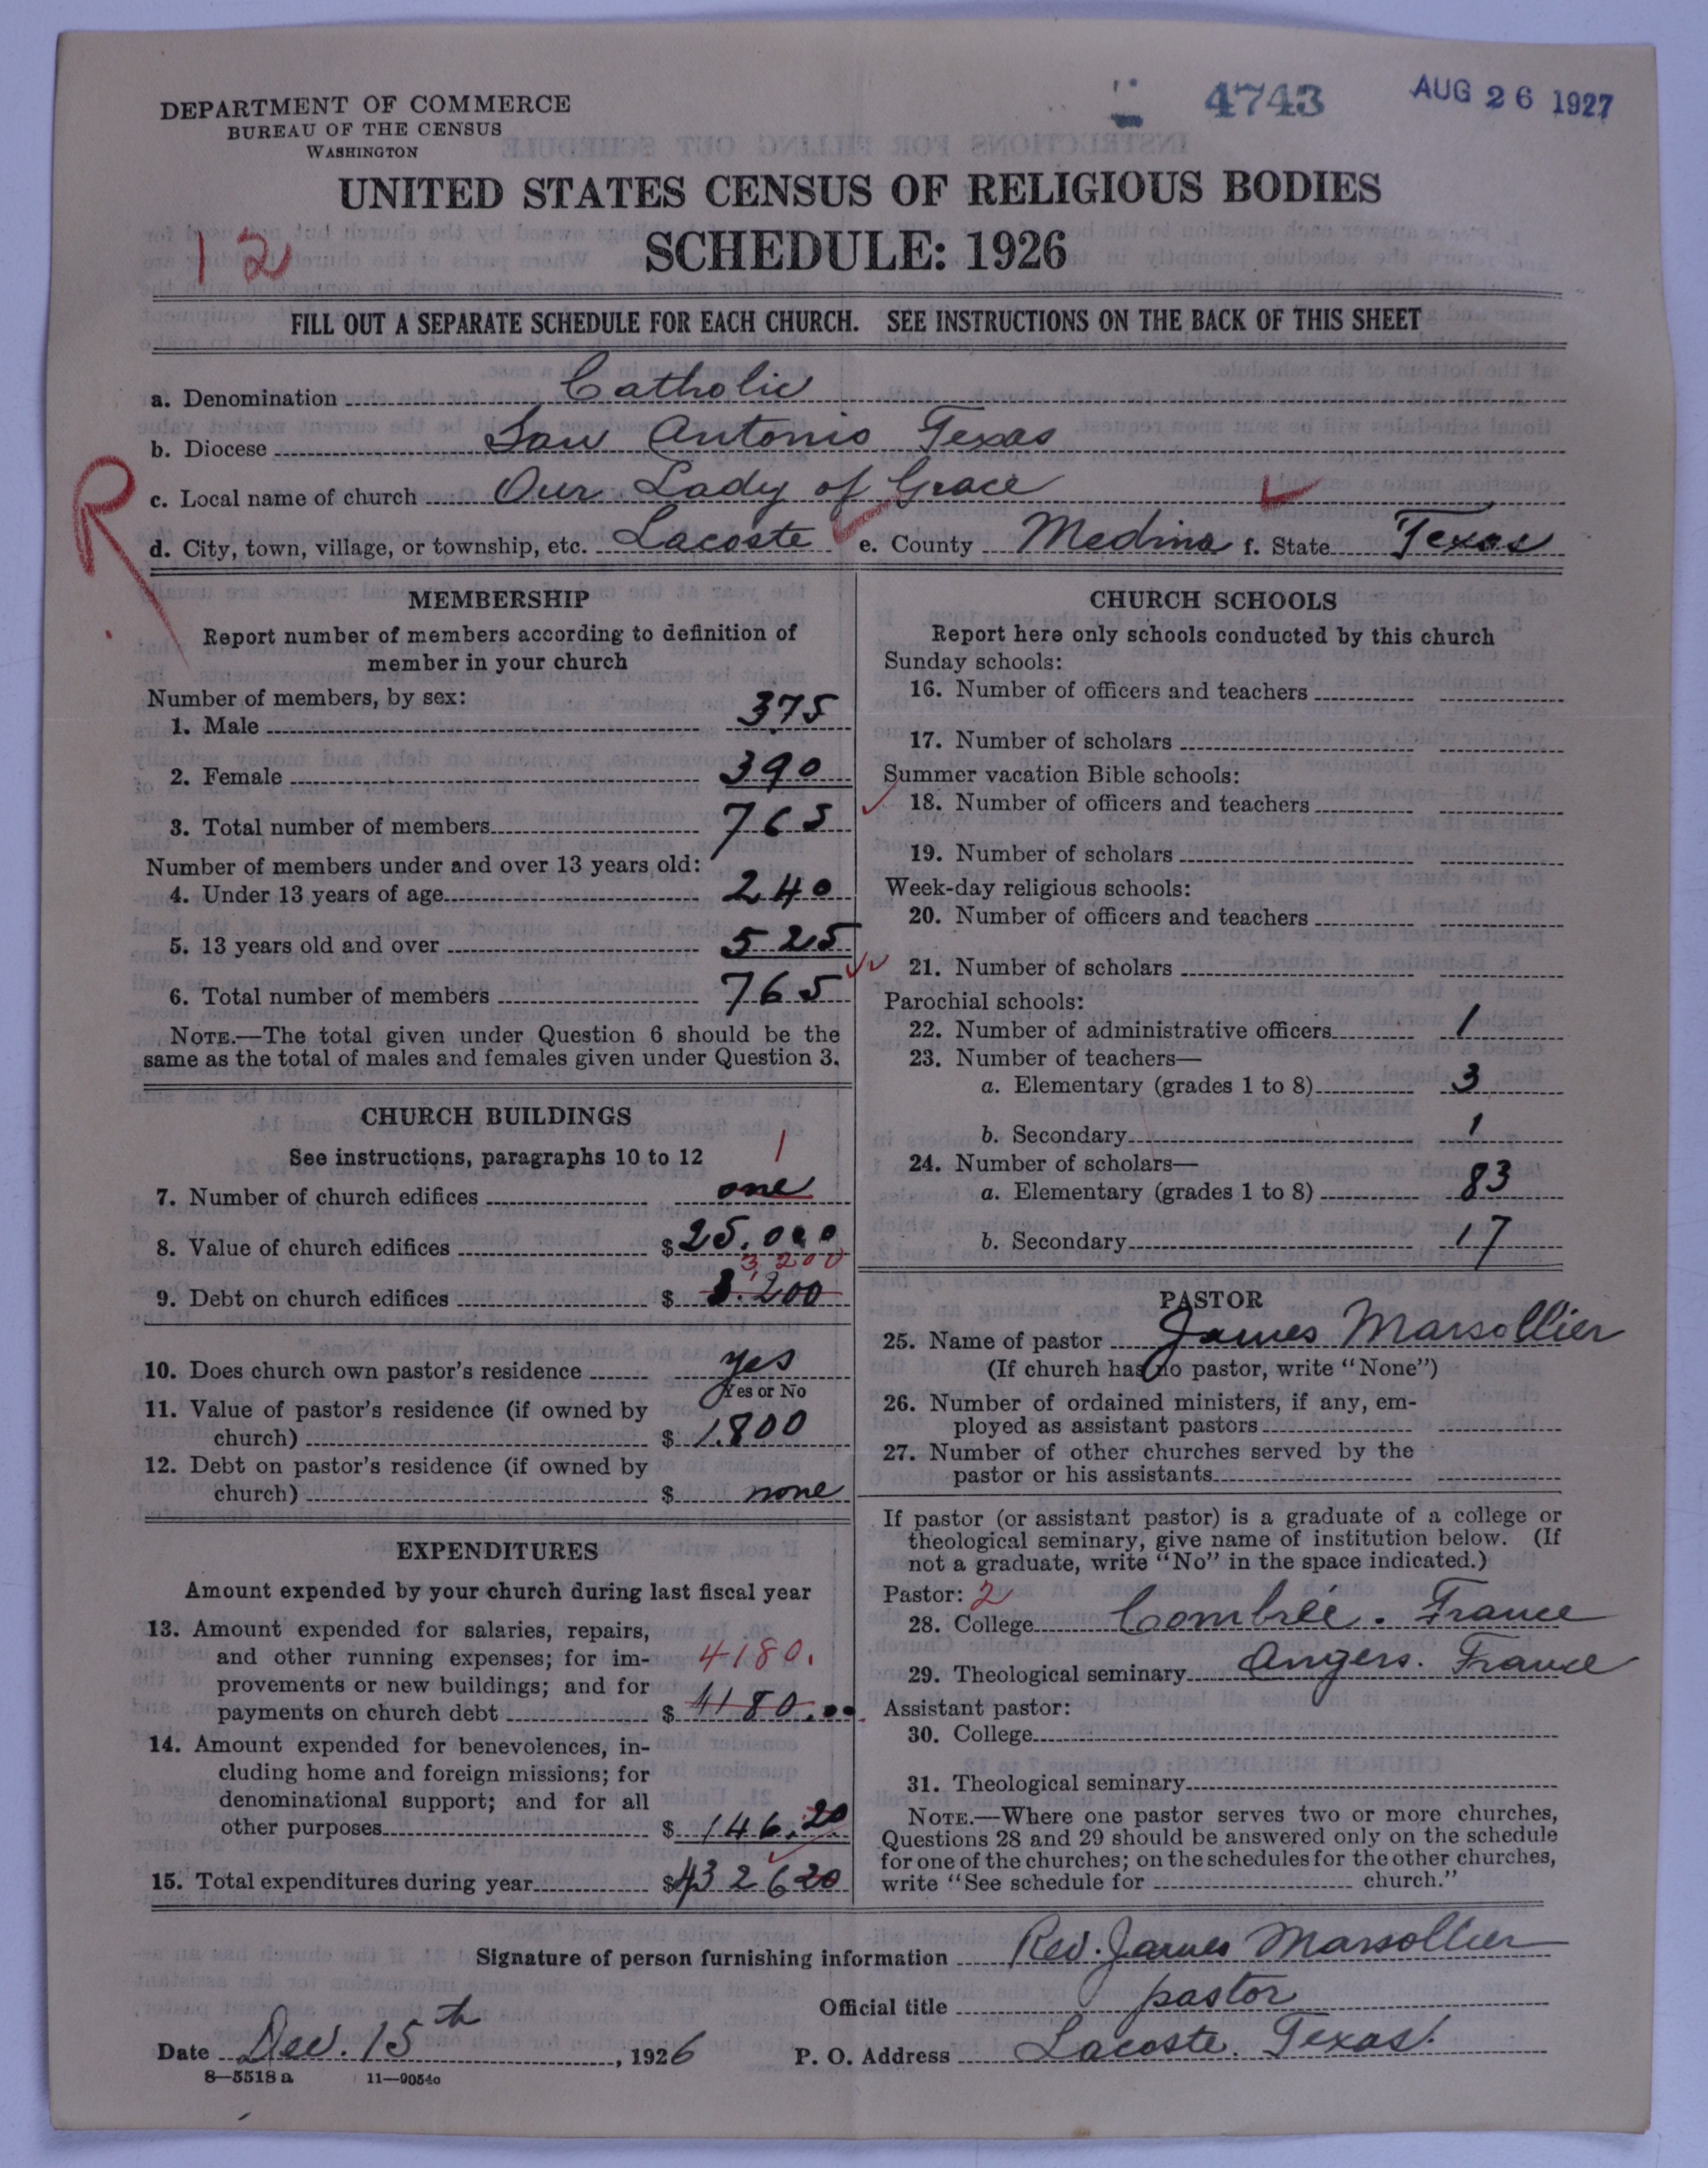 4743 AUG 26 1927
DEPARTMENT OF COMMERCE
BUREAU OF THE CENSUS
WASHINGTON
UNITED STATES CENSUS OF RELIGIOUS BODIES
12
SCHEDULE: 1926
FILL OUT A SEPARATE SCHEDULE FOR EACH CHURCH. SEE INSTRUCTIONS ON THE BACK OF THIS SHEET
a. Denomination Catholic
b. Diocese San Antonio Texas
R
c. Local name of church Our Lady of Grace
d. City, town, village, or township, etc. Lacoste e. County Medina f. State Texas
MEMBERSHIP
Report number of members according to definition of
member in your church
Number of members, by sex:
1. Male 375
2. Female 390
3. Total number of members 765
Number of members under and over 13 years old:
4. Under 13 years of age 240
5. 13 years old and over 525
6. Total number of members 765
NOTE.—The total given under Question 6 should be the
same as the total of males and females given under Question 3.
CHURCH BUILDINGS
See instructions, paragraphs 10 to 12
1
7. Number of church edifices one
8. Value of church edifices $25.000
3,200
9. Debt on church edifices $ 3.200
10. Does church own pastor's residence yes
Yes or No
11. Value of pastor's residence (if owned by
church) $ 1.800
12. Debt on pastor's residence (if owned by
church) $ none
EXPENDITURES
Amount expended by your church during last fiscal year
13. Amount expended for salaries, repairs,
and other running expenses; for im- 4180.
provements or new buildings; and for
payments on church debt $ 4180.00
14. Amount expended for benevolences, in-
cluding home and foreign missions; for
denominational support; and for all
other purposes $ 146.20
15. Total expenditures during year $4326 20
CHURCH SCHOOLS
Report here only schools conducted by this church
Sunday schools:
16. Number of officers and teachers
17. Number of scholars
Summer vacation Bible schools:
18. Number of officers and teachers
19. Number of scholars
Week-day religious schools:
20. Number of officers and teachers
21. Number of scholars
Parochial schools:
22. Number of administrative officers 1
23. Number of teachers—
a. Elementary (grades 1 to 8) 3
b. Secondary 1
24. Number of scholars—
a. Elementary (grades 1 to 8) 83
b. Secondary 17
PASTOR
25. Name of pastor James Marsollier
(If church has no pastor, write "None")
26. Number of ordained ministers, if any, em-
ployed as assistant pastors
27. Number of other churches served by the
pastor or his assistants
If pastor (or assistant pastor) is a graduate of a college or
theological seminary, give name of institution below. (If
not a graduate, write "No" in the space indicated.)
Pastor: 2
28. College Combrée. France
29. Theological seminary Angers. France
Assistant pastor:
30. College
31. Theological seminary
NOTE.—Where one pastor serves two or more churches,
Questions 28 and 29 should be answered only on the schedule
for one of the churches; on the schedules for the other churches,
write "See schedule for church."
Signature of person furnishing information Rev. James Marsollier
Official title pastor
Date Dec. 15th, 1926 P. O. Address Lacoste. Texas.
8—5518 a 11—9054c